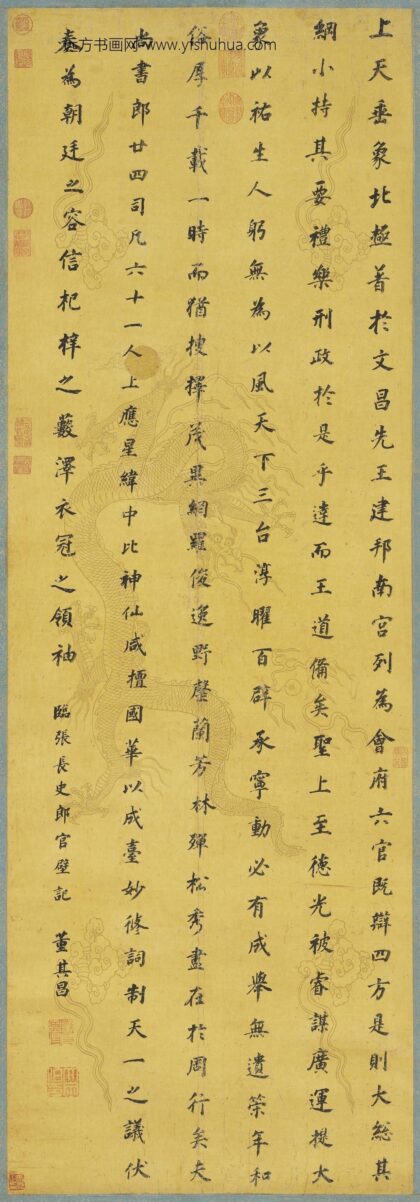 上天垂象北極著於文昌先王建邦南宮列為會府六官既辯四方是則大總其
綱小持其要禮樂刑政於是乎達而王道備矣聖上至德光被睿謀廣運提大
象以祐生人躬無為以風天下三台淳曜百辟承寧動必有成舉無遺策年和
俗厚千載一時而猶搜擇茂異網羅俊逸野罄蘭芳林殫松秀盡在於周行矣夫
尚書郎廿四司凡六十一人上應星緯中比神仙咸擅國華以成臺妙修詞制天一之議伏
奏為朝廷之容信杞梓之藪澤衣冠之領袖
臨張長史郎官壁記
董其昌
東方书画网 www.yfshuhua.com